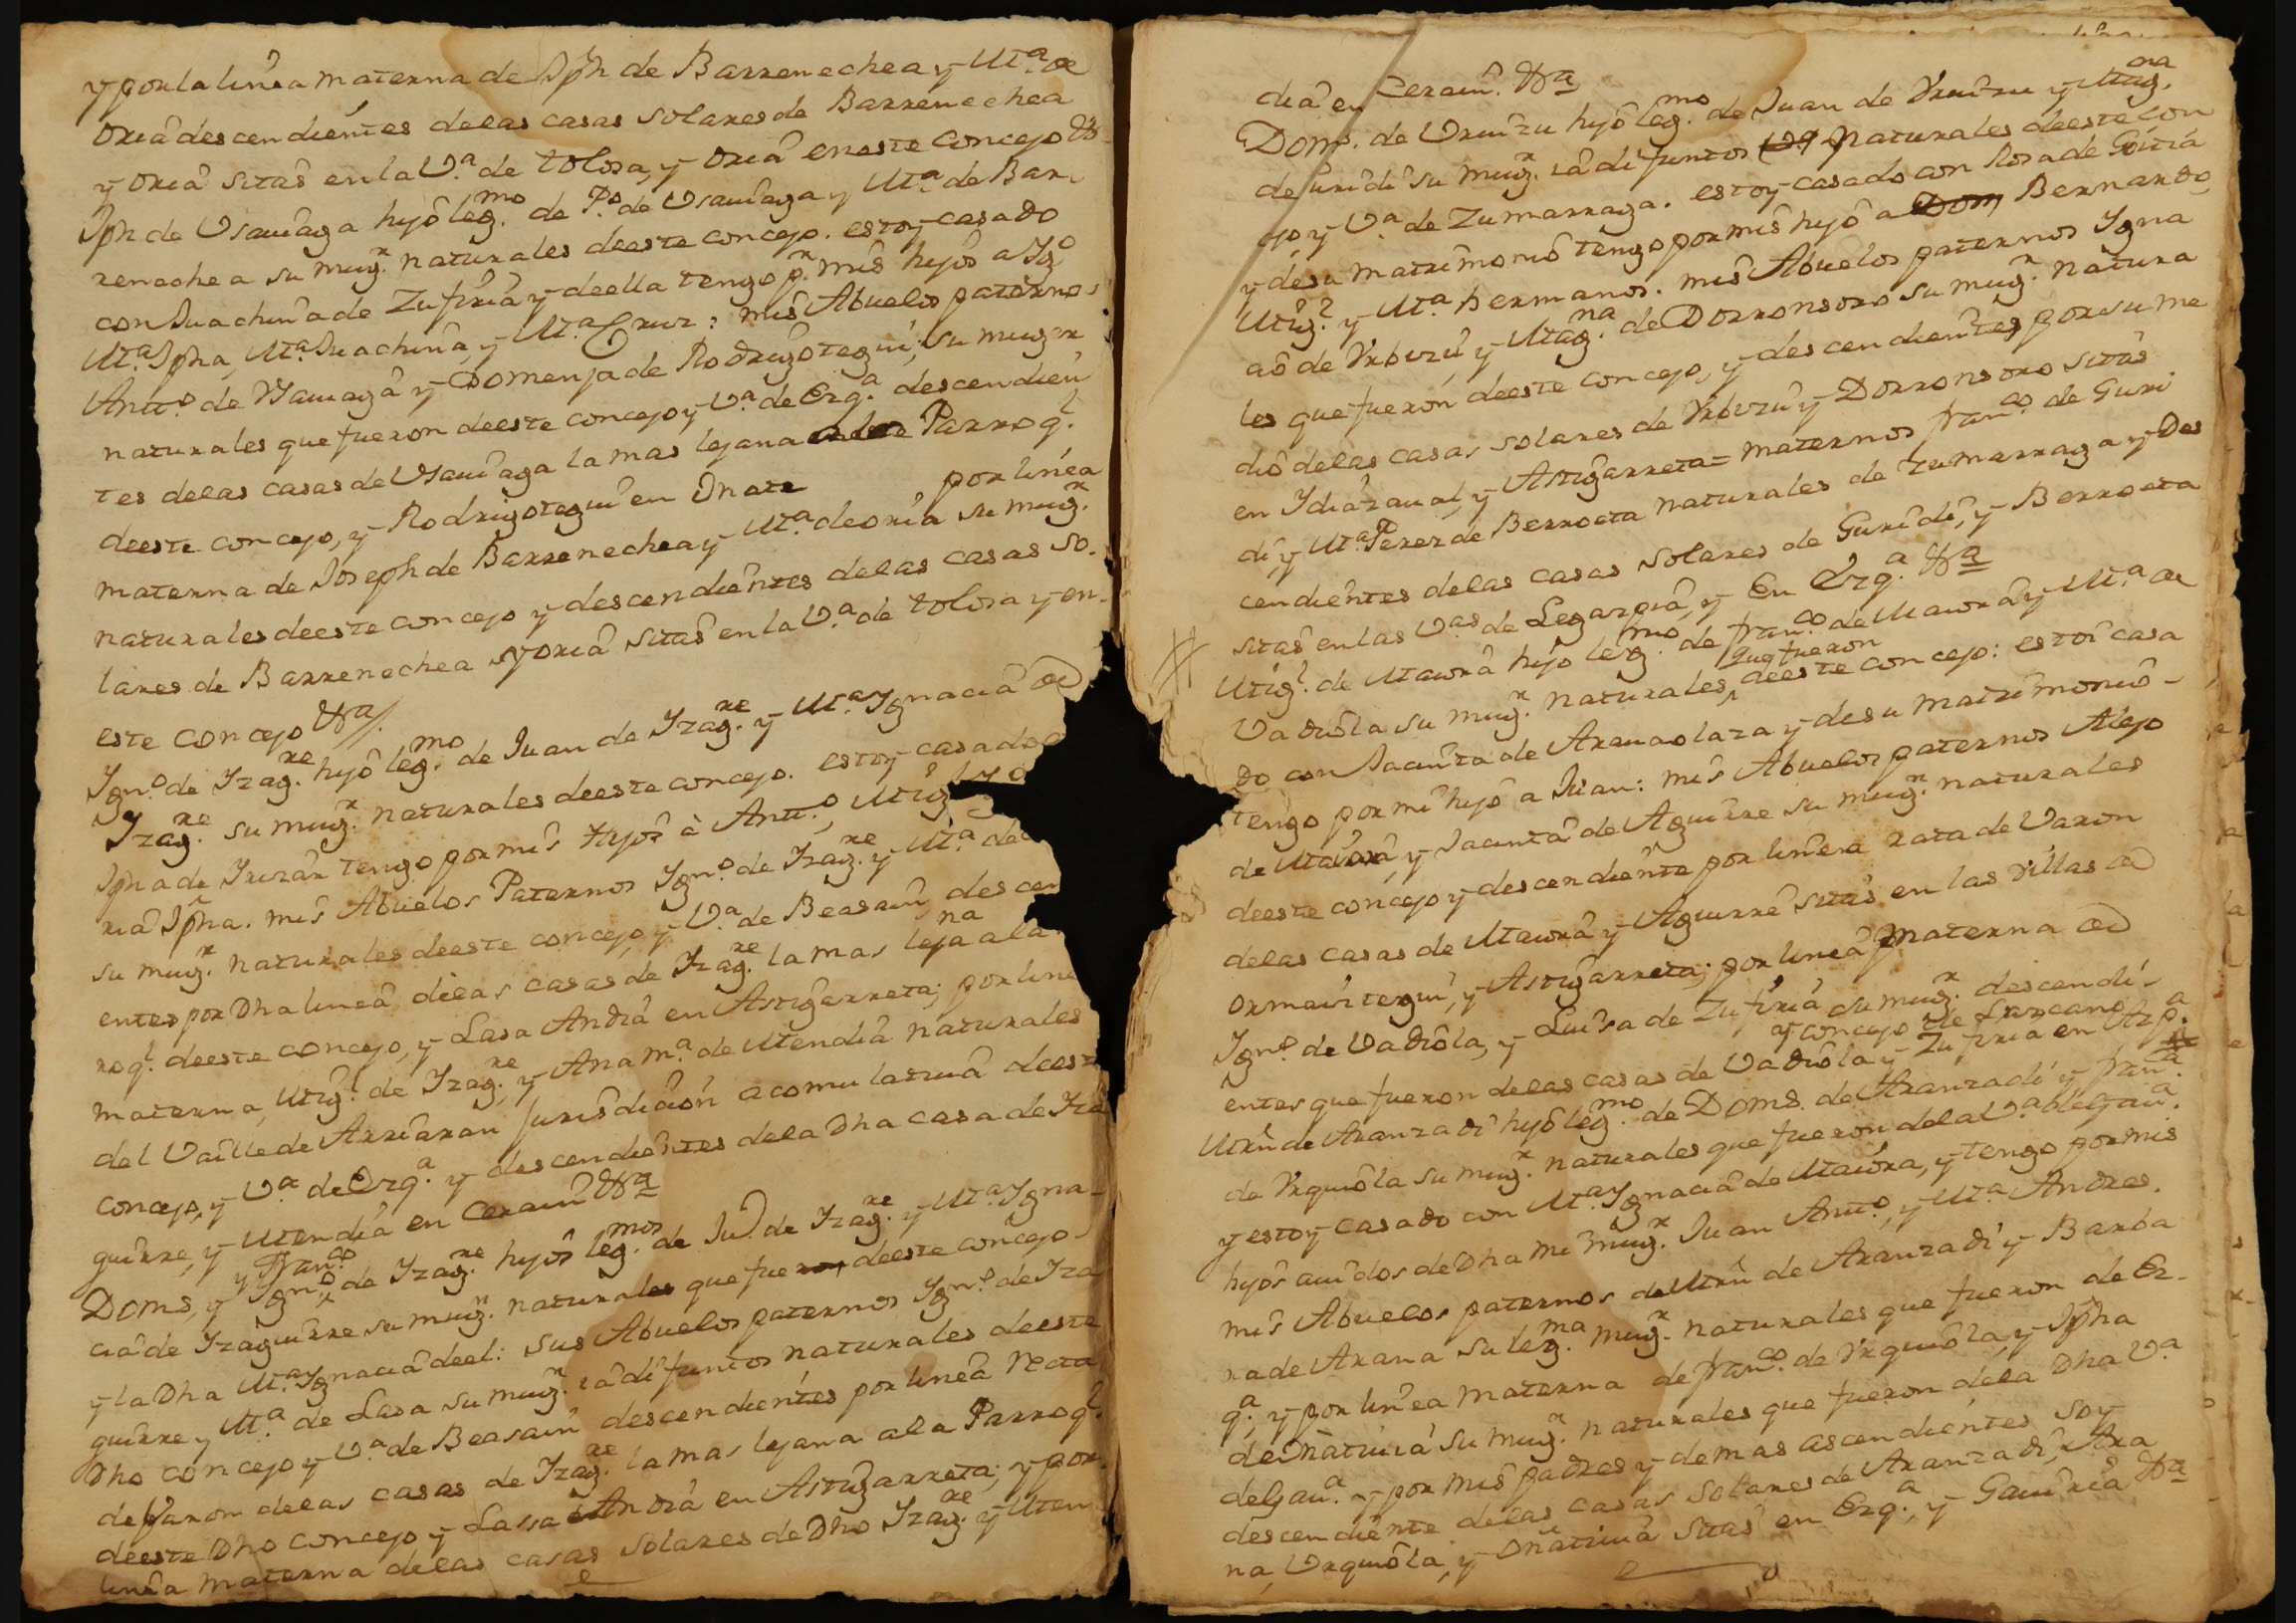 y por la linea materna de Jph de Barrenechea y M.ª de
oria descendientes de las casas solares de Barrenechea
y oria sitas en la V.ª de tolosa, y oria en este concejo &ª
Jph de Vsauiaga hijo leg.mo de P.o de Vsauiaga y M.ª de Bar
renechea su mug.r naturales de este concejo. estoy casado
con Juachina de Zufiria y de ella tengo p.r mis hijos a Ig.o
M.ª Jpha, M.ª Juachina, y M.ª Cruz: mis Abuelos paternos
Antt.o de Vsauiaga y Domenja de Rodrigotegui, su muger
naturales que fueron de este concejo y V.ª de Ezq.ª descendien
tes de las casas de Vsauiaga la mas lejana Parroq.l
de este concejo, y Rodrigotegui en Onate por linea
materna de Joseph de Barrenechea y M.ª de oria su mug.r
naturales de este concejo y descendientes de las casas so-
lares de Barrenechea y oria sitas en la V.ª de tolosa y en
este concejo &ª
Ign.o de Yzag.re hijo leg.mo de Juan de Yzag.re y M.ª Ygnacia de
Yzag.re su mug.r naturales de este concejo. estoy casado
Jpha de Yrizar tengo por mis hijos à Antt.o, Mig.l y
ria Jpha. mis Abuelos Paternos Ygn.o de Yzag.re y M.ª de
su mug.r naturales de este concejo, y V.ª de Beasain, descen
entes por Dha linea de las casas de Yzag.re la mas lejana a la
roq.l de este concejo, y Lasa Andia en Astigarreta; por line
materna, Mig.l de Yzag.re, y Ana M.ª de Mendia naturales
del Vaille de Arriaran Jurisdicion acomulatiua de est
concejo, y V.ª de Ezq.ª y descendientes de la Dha casa de Yza
guirre, y Mendia en Cerain &ª
Doms, y Ygn.o y Fran.co de Yzag.re hijos leg.mos de Ju.o de Yzag.re y M.ª Ygna-
cia de Yzaguirre su mug.r naturales que fueron de este concejo
y la Dha M.ª Ygnacia de el: sus Abuelos paternos Ygn.o de Yza
guirre y M.ª de Lasa su mug.r ia difuntos naturales de este
Dho concejo y V.ª de Beasain descendientes por linea recta
de Varon de las casas de Yzag.re la mas lejana a la Parroq.l
de este Dho concejo y Lassa Andia en Astigarreta; y por
linea materna de las casas solares de Dho Yzag.re y Men
dia en Cerain. &ª
Doms. de Vruizu hijo leg.mo de Juan de Vruizu y Mag.na
de Guridi su mug.r ia difuntos naturales de este con
cejo y V.ª de Zumarraga. estoy casado con Rosa de Goitia
y de su matrimonio tengo por mis hijo a Bernardo
Mig.l y M.ª hermanos. mis Abuelos paternos Ygna
cio de Vrbizu y Mag.na de Dorronsoro su mug.r natura
les que fueron de este concejo, y descendientes por su me
dio de las casas solares de Vrbizu y Dorronsoro sitas
en Ydiazaual, y Astigarreta = maternos fran.co de Guri
di, y M.ª Perez de Berroeta naturales de Zumarraga y Des
cendientes de las casas solares de Guridi, y Berroeta
sitas en las V.as de Legazpia, y En Ezq.ª &ª
Mig.l de Maiora hijo leg.mo de fran.co de Maiora y M.ª de
Vadiola su mug.r naturales que fueron de este concejo: estoi casa
do con Jacinta de Arenaolaza y de su matrimonio
tengo por mi hijo a Juan: mis Abuelos paternos Alejo
de Maiora y Jacinta de Aguirre su mug.r naturales
de este concejo y descendiente por linera rata de Varon
de las casas de Maiora y Aguirre sitas en las villas de
ormaiztegui, y Astigarreta; por linea materna de
Ign.o de Vadiola, y Luisa de Zufiria su mug.r descendi-
entes que fueron de las casas de Vadiola y Zufiria en Azp.ª y concejo de Lazcano
Mrñ de Aranzadi hijo leg.mo de Doms. de Aranzadi y fran.ca
de Vrquiola su mug.r naturales que fueron de la V.ª de Gau.ª
y estoy casado con M.ª Ygnacia de Maiora, y tengo por mis
hijos auidos de Dha mi mug.r Juan Antt.o, y M.ª Andres.
mis Abuelos paternos de Mrñ de Aranzadi y Barba
ra de Arana su leg.ma mug.r naturales que fueron de Ez-
q.ª, y por linea materna de fran.co de Vrquiola, y Jpha
de Oñatiuia su mug.r naturales que fueron de la Dha V.ª
de Gau.ª y por mis padres y demas ascendientes soy
descendiente de las casas solares de Aranzadi, Ara
na, Vrquiola, y Oñatiuia sitas en Ezq.ª, y Gauiria &ª